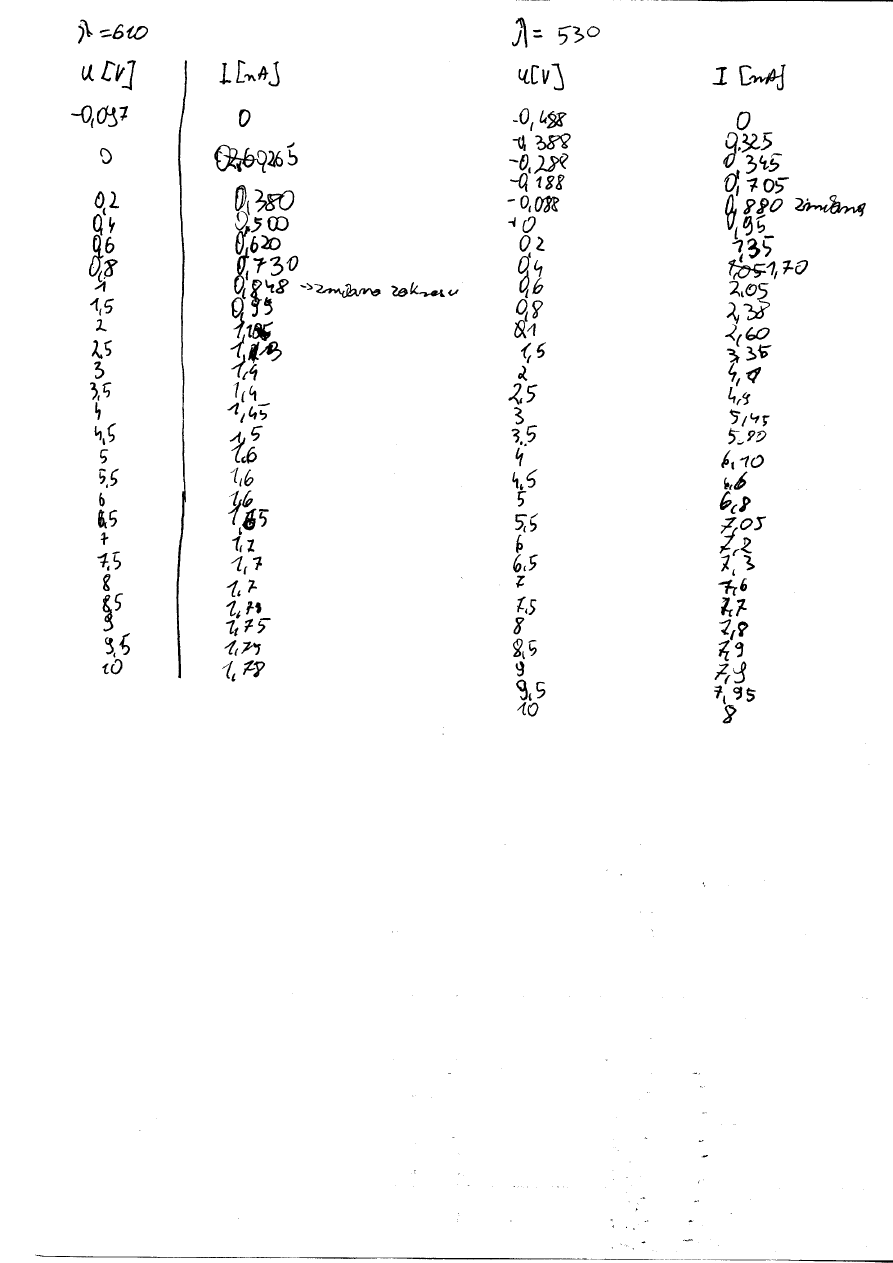 λ=610
U [V] I [nA]
-0,097 0
0 0,265
0,2 0,380
0,4 0,500
0,6 0,620
0,8 0,730
1 0,848 → zmiana zakresu
1,5 0,95
2
2,5
3 1,4
3,5 1,4
4 1,45
4,5 1,5
5 1,6
5,5 1,6
6 1,6
6,5 1,65
7 1,7
7,5 1,7
8 1,7
8,5
9 1,75
9,5 1,75
10 1,78
λ= 530
U[V] I [nA]
-0,488 0
-0,388 0,325
-0,288 0,345
-0,188 0,705
-0,088 0,880 zmiana
0 0,95
0,2 1,35
0,4 1,70
0,6 2,05
0,8 2,38
1 2,60
1,5 3,35
2
2,5 4,9
3 5,45
3,5
4 6,10
4,5 6,6
5 6,8
5,5 7,05
6 7,2
6,5 7,3
7 7,6
7,5 7,7
8 7,8
8,5 7,9
9 7,9
9,5 7,95
10 8